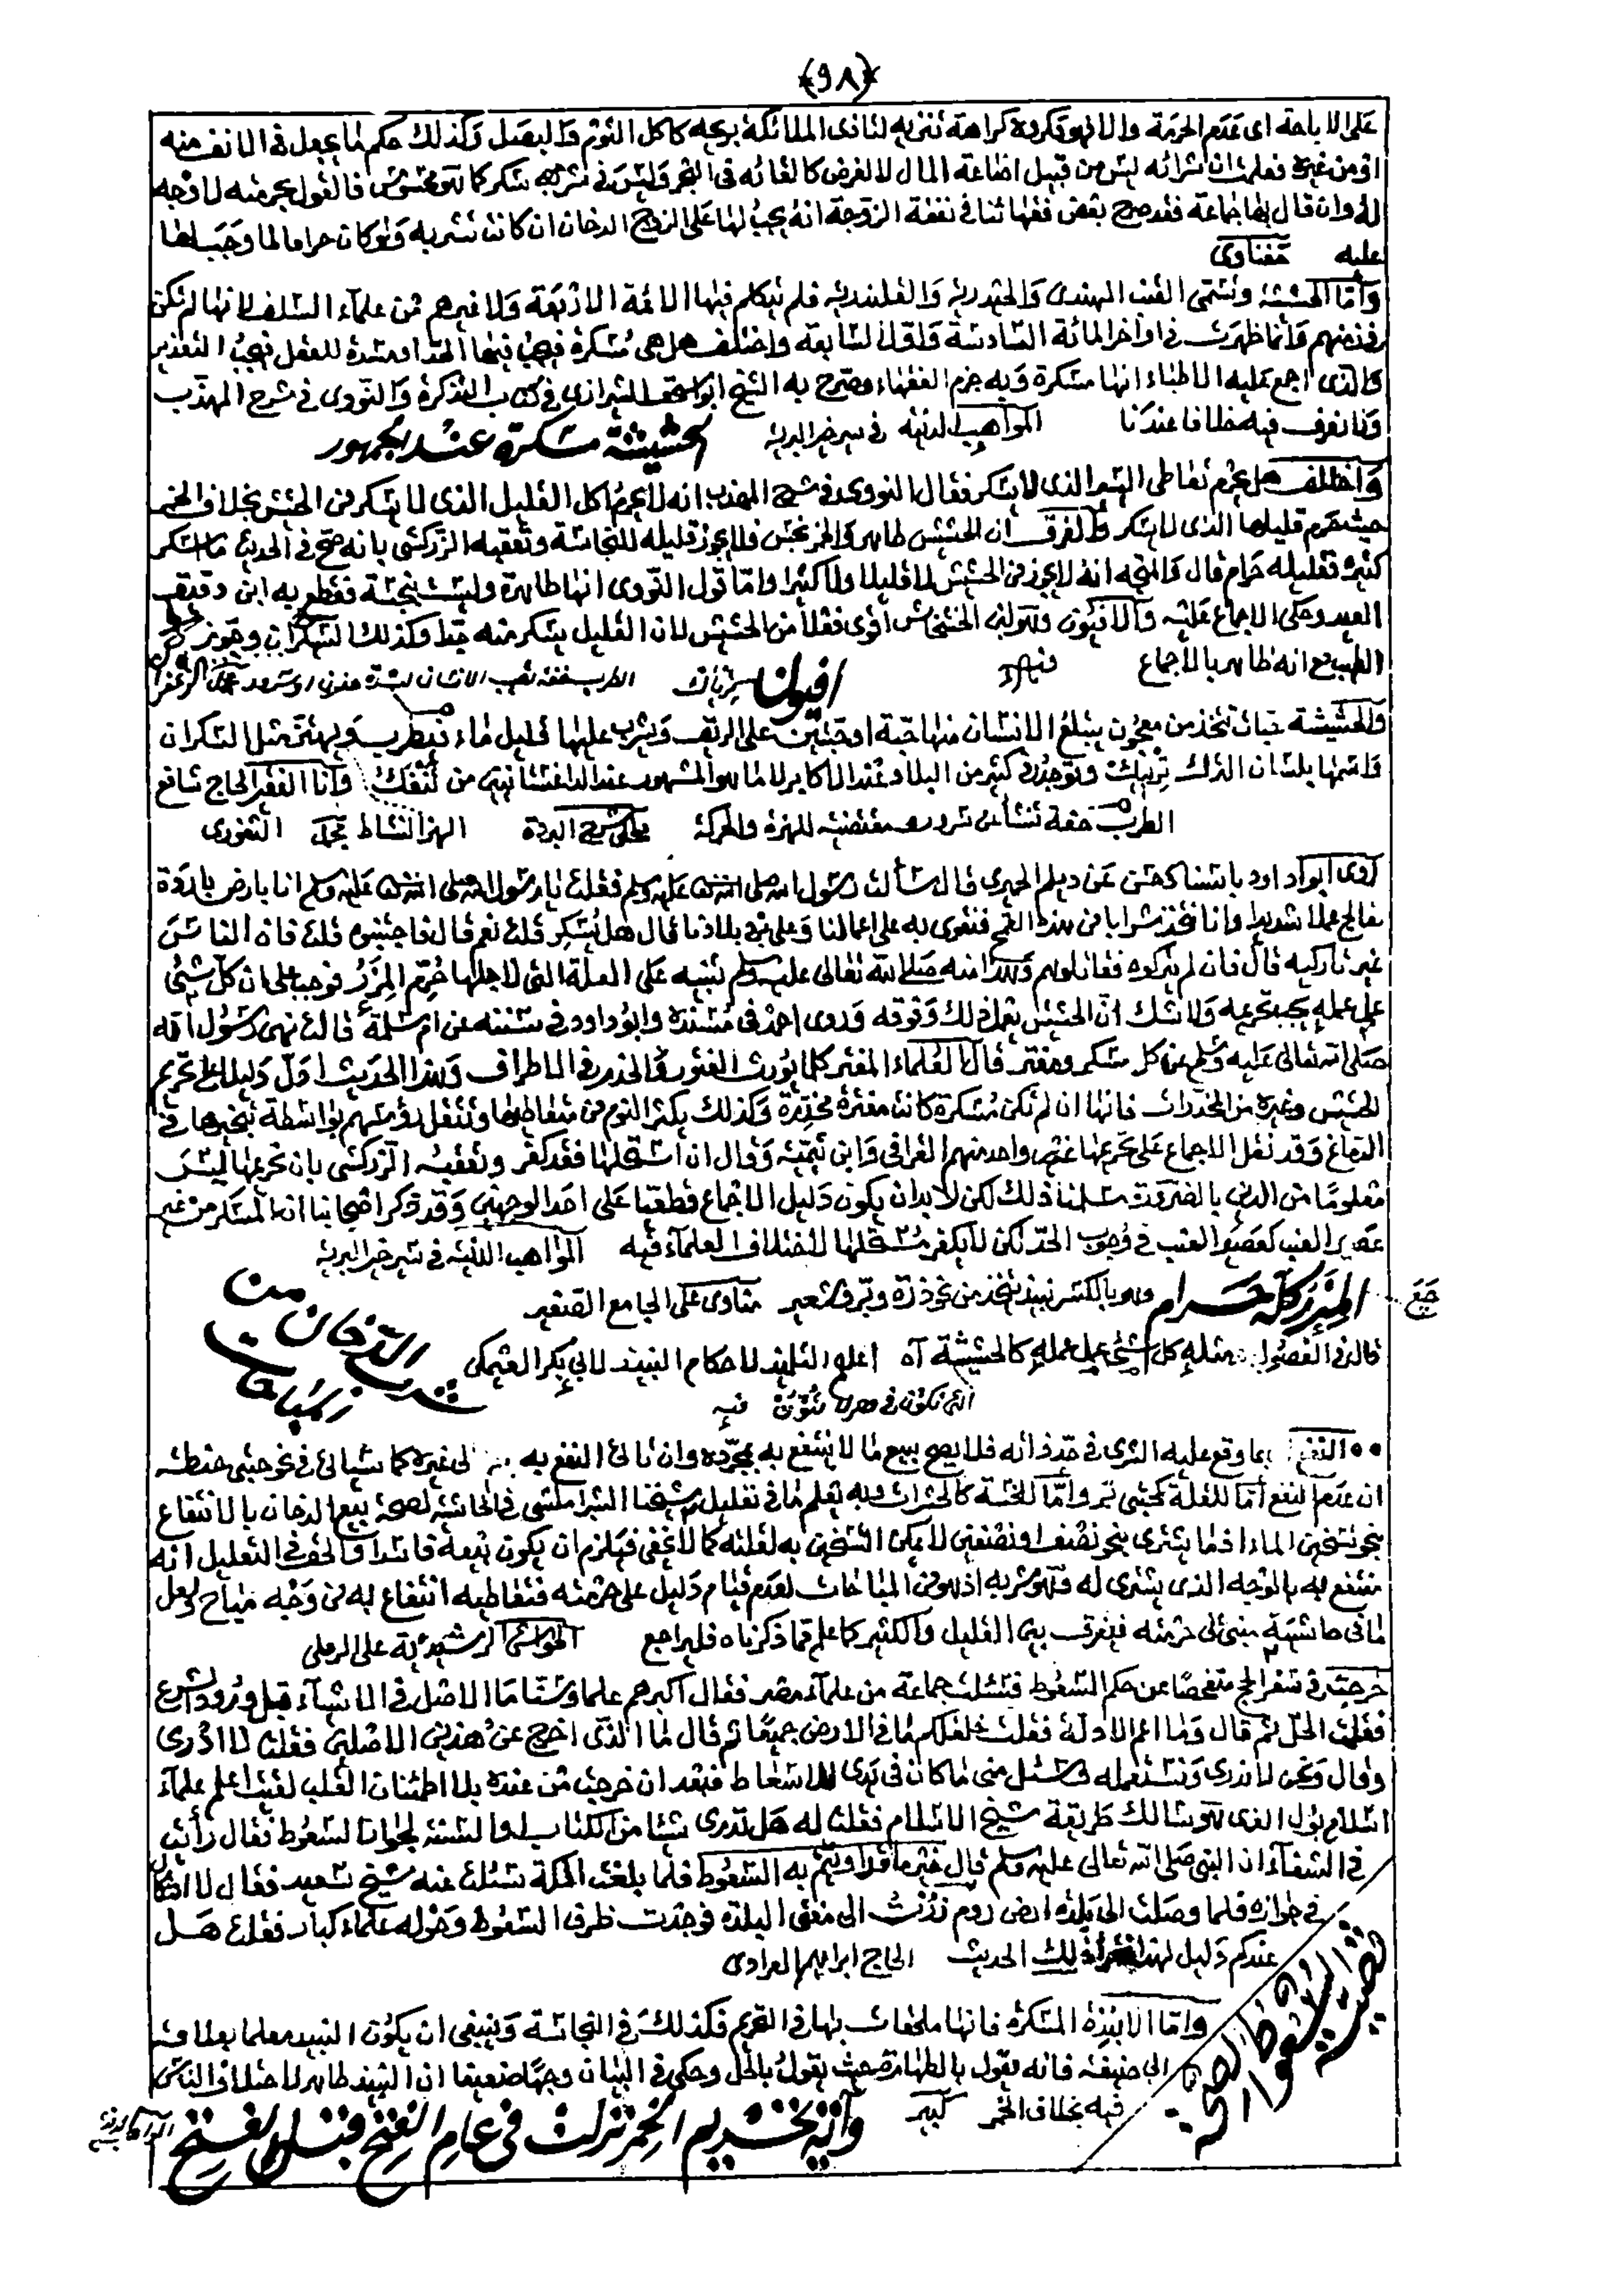 (٩٨)
على الاباحة اى عدم الحرمة والا فهو مكروه كراهة تنزيه لتاذى الملائكة بريحه كاكل الثوم والبصل وكذلك حكم ما يجعل فى الانف منه
او من غيره فعلمت ان شرائه ليس من قبيل اضاعة المال لا لغرض كالقائه فى البحر وليس فى شربه سكر كما هو محسوس فالقول بحرمته لا وجه
له وان قال بها جماعة فقد صرح بعض فقهائنا فى نفقة الزوجة انه يجب لها على الزوج الدخان ان كانت تشربه ولو كان حراما لما وجب لها
عليه
واما الحشيشة وتسمى القنب الهندى والحيدرية والقلندرية فلم يتكلم فيها الائمة الاربعة ولا غيرهم من علماء السلف لانها لم تكن
فى زمنهم وانما ظهرت فى اواخر المائة السادسة واول السابعة واختلف هل هى مسكرة فيجب فيها الحد او مفسدة للعقل فيجب التعزير
والذى اجمع عليه الاطباء انها مسكرة وبه جزم الفقهاء وصرح به الشيخ ابو اسحق الشيرازى فى كتاب التذكرة والنووى فى شرح المهذب
ولا نعرف فيه خلافا عندنا المواهب اللدنية فى سير خير البرية الحشيشة مسكرة عند الجمهور
واختلف هل يحرم تعاطى اليسير الذى لا يسكر فقال النووى فى شرح المهذب انه لا يحرم اكل القليل الذى لا يسكر من الحشيش بخلاف الخمر
حيث حرم قليلها الذى لا يسكر والفرق ان الحشيش طاهر والخمر نجس فلا يجوز قليله للنجاسة وتعقبه الزركشى بانه صح فى الحديث ما اسكر
كثيره فقليله حرام قال والمتجه انه لا يجوز من الحشيش لا قليلا ولا كثيرا واما قول النووى انها طاهرة وليست بنجسة فقطع به ابن دقيق
العيد وحكى الاجماع عليه والافيون وهو لبن الخشخاش اقوى فعلا من الحشيش لان القليل يسكر منه جدا وكذلك السيكران وجوز
الطيب مع انه طاهر بالاجماع فيه افيون ترياك
والحشيشة حبات تتخذ من معجون يبتلع الانسان منها حبة او حبتين على الريق ويشرب عليها قليل ماء فيطرب ويهتز مثل السكران
واسمها بلسان الترك ترياك وتوجد فى كثير من البلاد عند الاكابر لا ما هو المشهور عند الداغستانيين من وانا الفقير الحاج شافع
الطرب خفة تنشأ عن سرور مقتضية للهزة والحركة على شرح البردة الهز النشاط
روى ابو داود باسناد حسن عن ديلم الحميرى قال سألت رسول الله صلى الله عليه وسلم فقلت يا رسول الله صلى الله عليه وسلم انا بارض باردة
نعالج عملا شديدا وانا نتخذ شرابا من هذا القمح فنقوى به على اعمالنا وعلى برد بلادنا قال هل يسكر قلت نعم قال فاجتنبوه قلت فان الناس
غير تاركيه قال فان لم يتركوه فقاتلوهم وهذا منه صلى الله تعالى عليه وسلم تنبيه على العلة التى لاجلها حرم المزر فوجب على ان كل شئ
عمل عمله يجب تحريمه ولا شك ان الحشيش يعمل ذلك وفوقه وروى احمد فى مسنده وابو داود فى سننه عن ام سلمة قالت نهى رسول الله
صلى الله تعالى عليه وسلم عن كل مسكر ومفتر قال العلماء المفتر كل ما يورث الفتور والخدر فى الاطراف وهذا الحديث ادل دليل على تحريم
الحشيش وغيره من المخدرات فانها ان لم تكن مسكرة كانت مفترة مخدرة وكذلك يكثر النوم من متعاطيها وتثقل رؤسهم بواسطة تبخيرها فى
الدماغ وقد نقل الاجماع على تحريمها غير واحد منهم القرافى وابن تيمية وقال ان استحلها فقد كفر وتعقبه الزركشى بان تحريمها ليس
معلوما من الدين بالضرورة سلمنا ذلك لكن لا بد ان يكون دليل الاجماع قطعيا على احد الوجهين وقد ذكر اصحابنا ان المسكر من غير
عصير العنب كعصير العنب فى وجوب الحد لكن لا يكفر مستحلها لاختلاف العلماء فيه المواهب اللدنية فى سير خير البرية
المزر كله حرام وهو بالكسر نبيذ يتخذ من نحو ذرة وبر وشعير مناوى على الجامع الصغير
قال فى الفصول مثله كل شئ عمل عمله كالحشيشة اه لاحكام النبيذ لابى بكر
شرب الدخان من
النفع بما وقع عليه الشرى فى حد ذاته فلا يصح بيع ما لا ينتفع به بمجرده وان تاتى النفع به الى غيره كما سيأتى فى نحو حبتى حنطة
ان عدم النفع اما للقلة كحبتى بر واما للخسة كالحشرات وبه يعلم ما فى تعليل شيخنا الشبراملسى فى الحاشية لصحة بيع الدخان بالانتفاع
بنحو تسخين الماء اذ ما يشترى بنحو نصف او نصفين لا يمكن التسخين به لقلته كما لا يخفى فيلزم ان يكون بيعه فاسدا والحق فى التعليل انه
منتفع به بالوجه الذى يشترى له وهو شربه اذ هو من المباحات لعدم قيام دليل على حرمته فتعاطيه انتفاع به من وجه مباح ولعل
ما فى حاشية مبنى على حرمته فيفرق بين القليل والكثير كما علم مما ذكرناه فليراجع الحواشى الرشيدية على الرملى
خرجت فى سفر الحج متفحصا عن حكم السعوط فسئلت جماعة من علماء مصر فقال اكبرهم علما وسنا ما الاصل فى الاشياء قبل ورود الشرع
فقلت الحل ثم قال وما اعم الادلة فقلت خلق لكم ما فى الارض جميعا ثم قال ما الذى اخرج عن هذين الاصلين فقلت لا ادرى
وقال ونحن لا ندرى ونستعمله وسئل منى ما كان فى يدى للاسعاط فبعد ان خرجت من عنده بلا اطمئنان القلب لقيت اعلم علماء
اسلامبول الذى هو سالك طريقة شيخ الاسلام فقلت له هل تدرى شيئا من الكتاب والسنة لجواز السعوط فقال رأيت
فى الشفاء ان النبى صلى الله تعالى عليه وسلم قال خير ما تداويتم به السعوط فلما بلغت المكة سئلت عنه شيخ سعيد فقال لا اشكال
فى جوازه فلما وصلت الى بلدة ارض روم زرت الى مفتى البلدة فوجدت ظرف السعوط وحوله علماء كبار فقلت هل
عندكم دليل لهذا ذلك الحديث الحاج ابراهيم العرادى
واما الانبذة المسكرة فانها ملحقات بها فى التحريم فكذلك فى النجاسة وينبغى ان يكون النبيذ معلما بعلامة
ابى حنيفة فانه يقول بالطهارة حيث يقول بالحل وحكى فى البيان وجها ضعيفا ان النبيذ طاهر لاختلاف الناس
فيه بخلاف الخمر كبير
وآية تحريم الخمر نزلت فى عام الفتح قبل الفتح